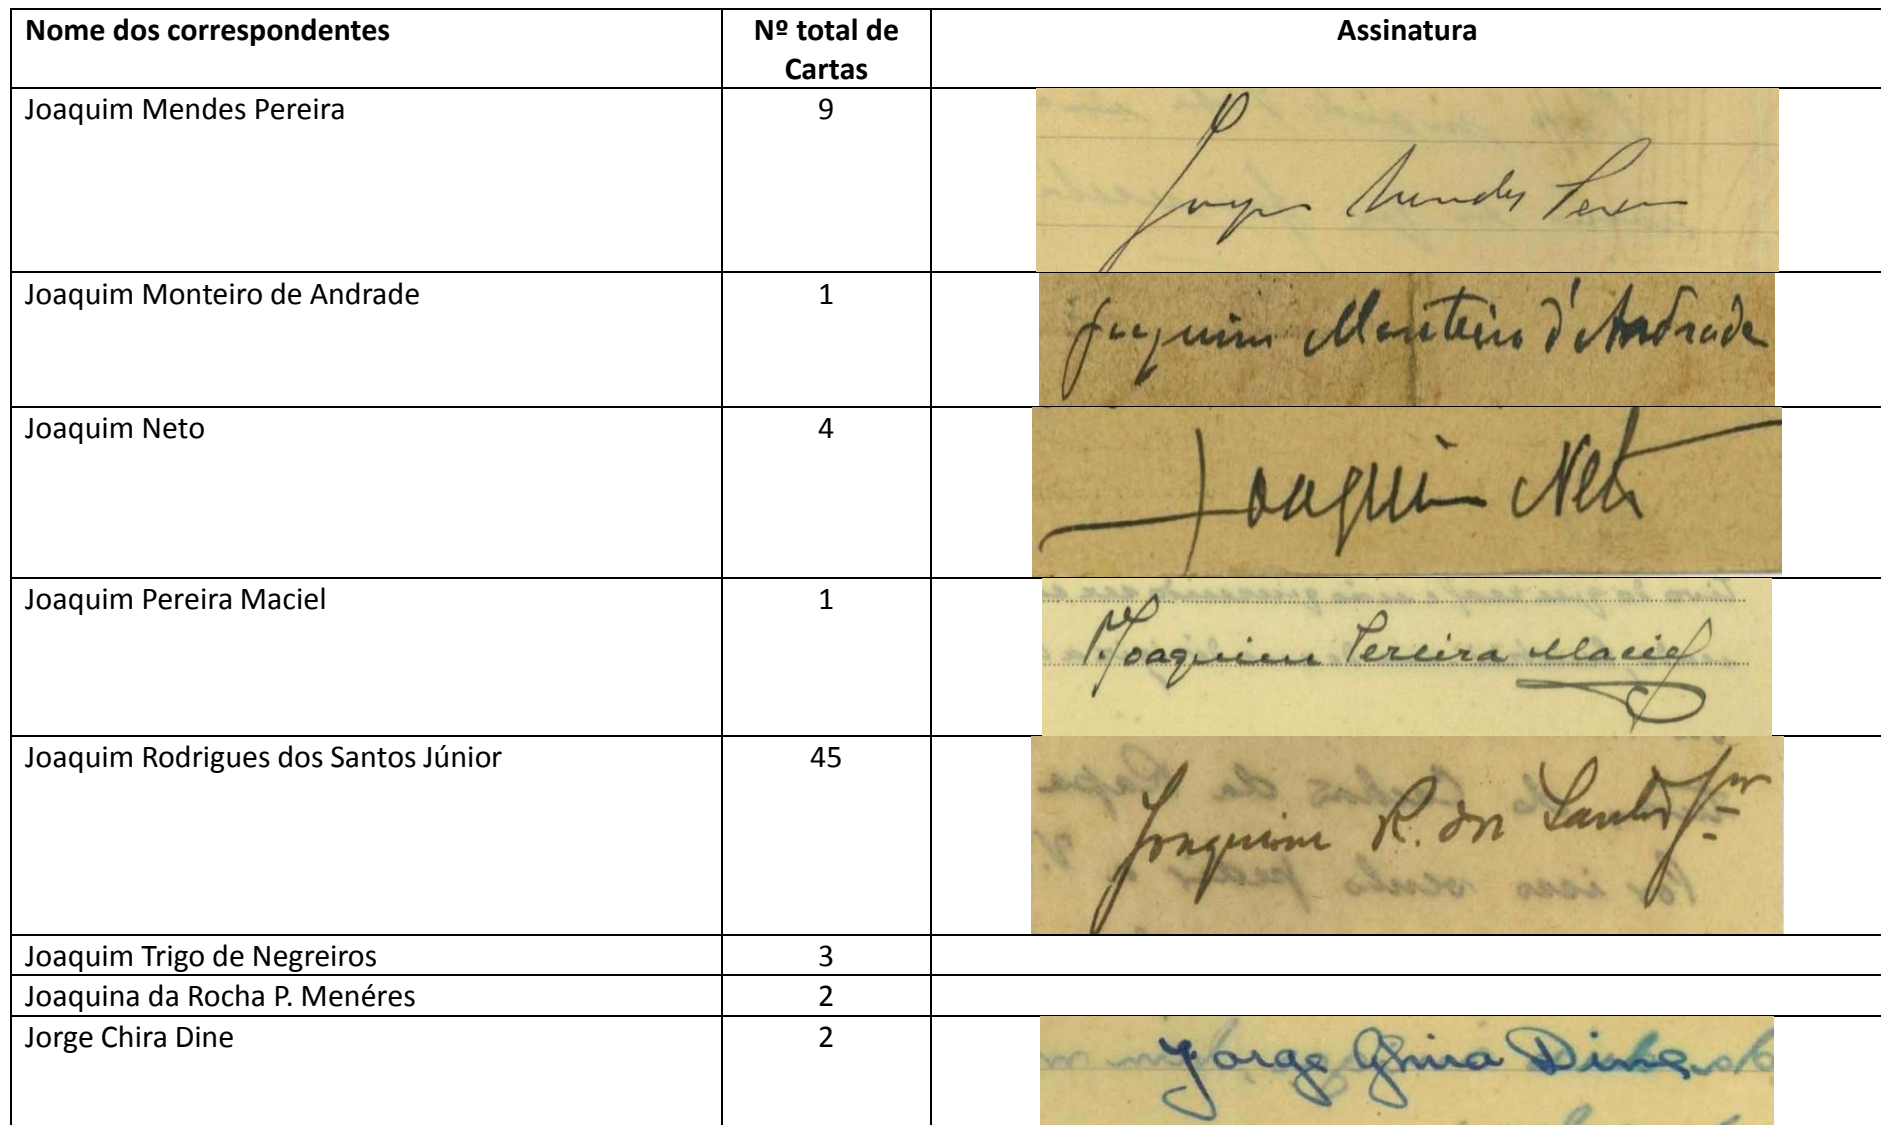 Nome dos correspondentes
Nº total de
Cartas
Assinatura
Joaquim Mendes Pereira
9
Joaquim Mendes Pereira
Joaquim Monteiro de Andrade
1
Joaquim Monteiro d'Andrade
Joaquim Neto
4
Joaquim Neto
Joaquim Pereira Maciel
1
Joaquim Pereira Maciel
Joaquim Rodrigues dos Santos Júnior
45
Joaquim R. dos Santos Jnr
Joaquim Trigo de Negreiros
3
Joaquina da Rocha P. Menéres
2
Jorge Chira Dine
2
Jorge Ghira Dine